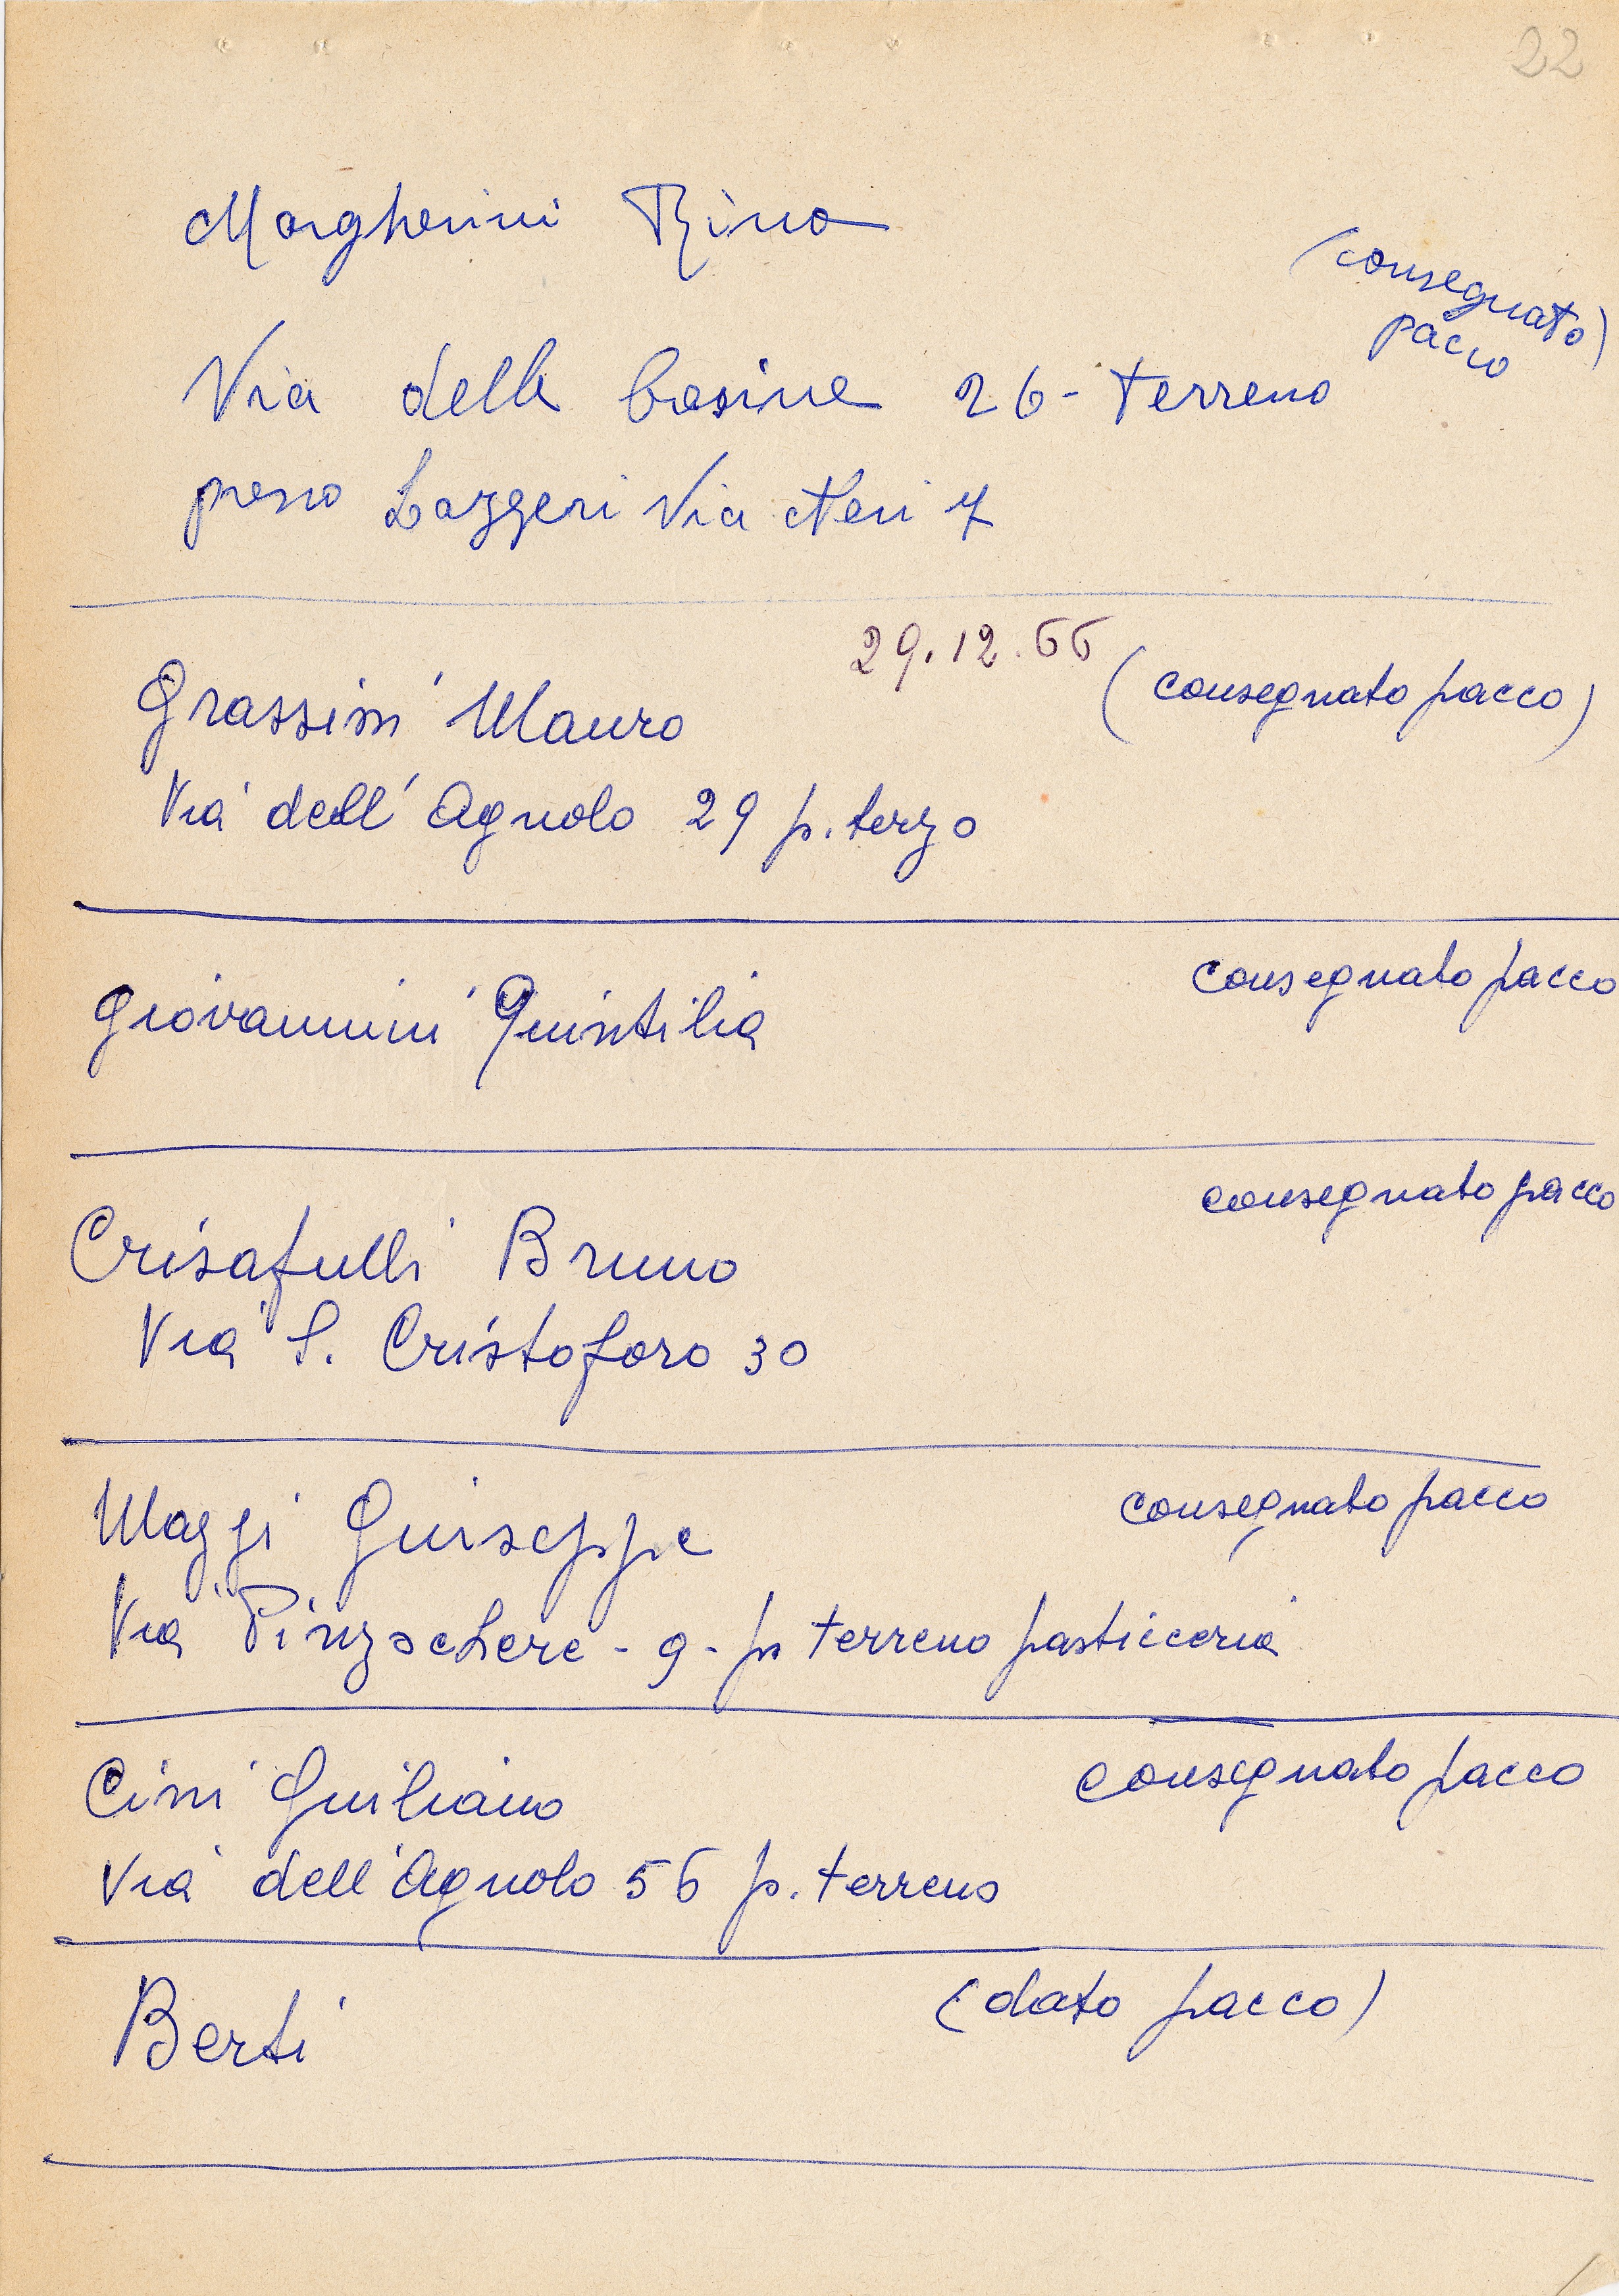 22
Margherini Rino
(consegnato
pacco)
Via delle Casine 26 - terreno
presso Lazzeri Via Neri 7
29.12.66
(consegnato pacco)
Grassini Mauro
Via dell'Agnolo 29 p. terzo
consegnato pacco
Giovannini Quintilia
consegnato pacco
Crisafulli Bruno
Via S. Cristoforo 30
Maggi Giuseppe
consegnato pacco
Via Pinzochere - 9 - p terreno pasticceria
Cini Giuliano
consegnato pacco
Via dell'Agnolo 56 p. terreno
Berti
(dato pacco)